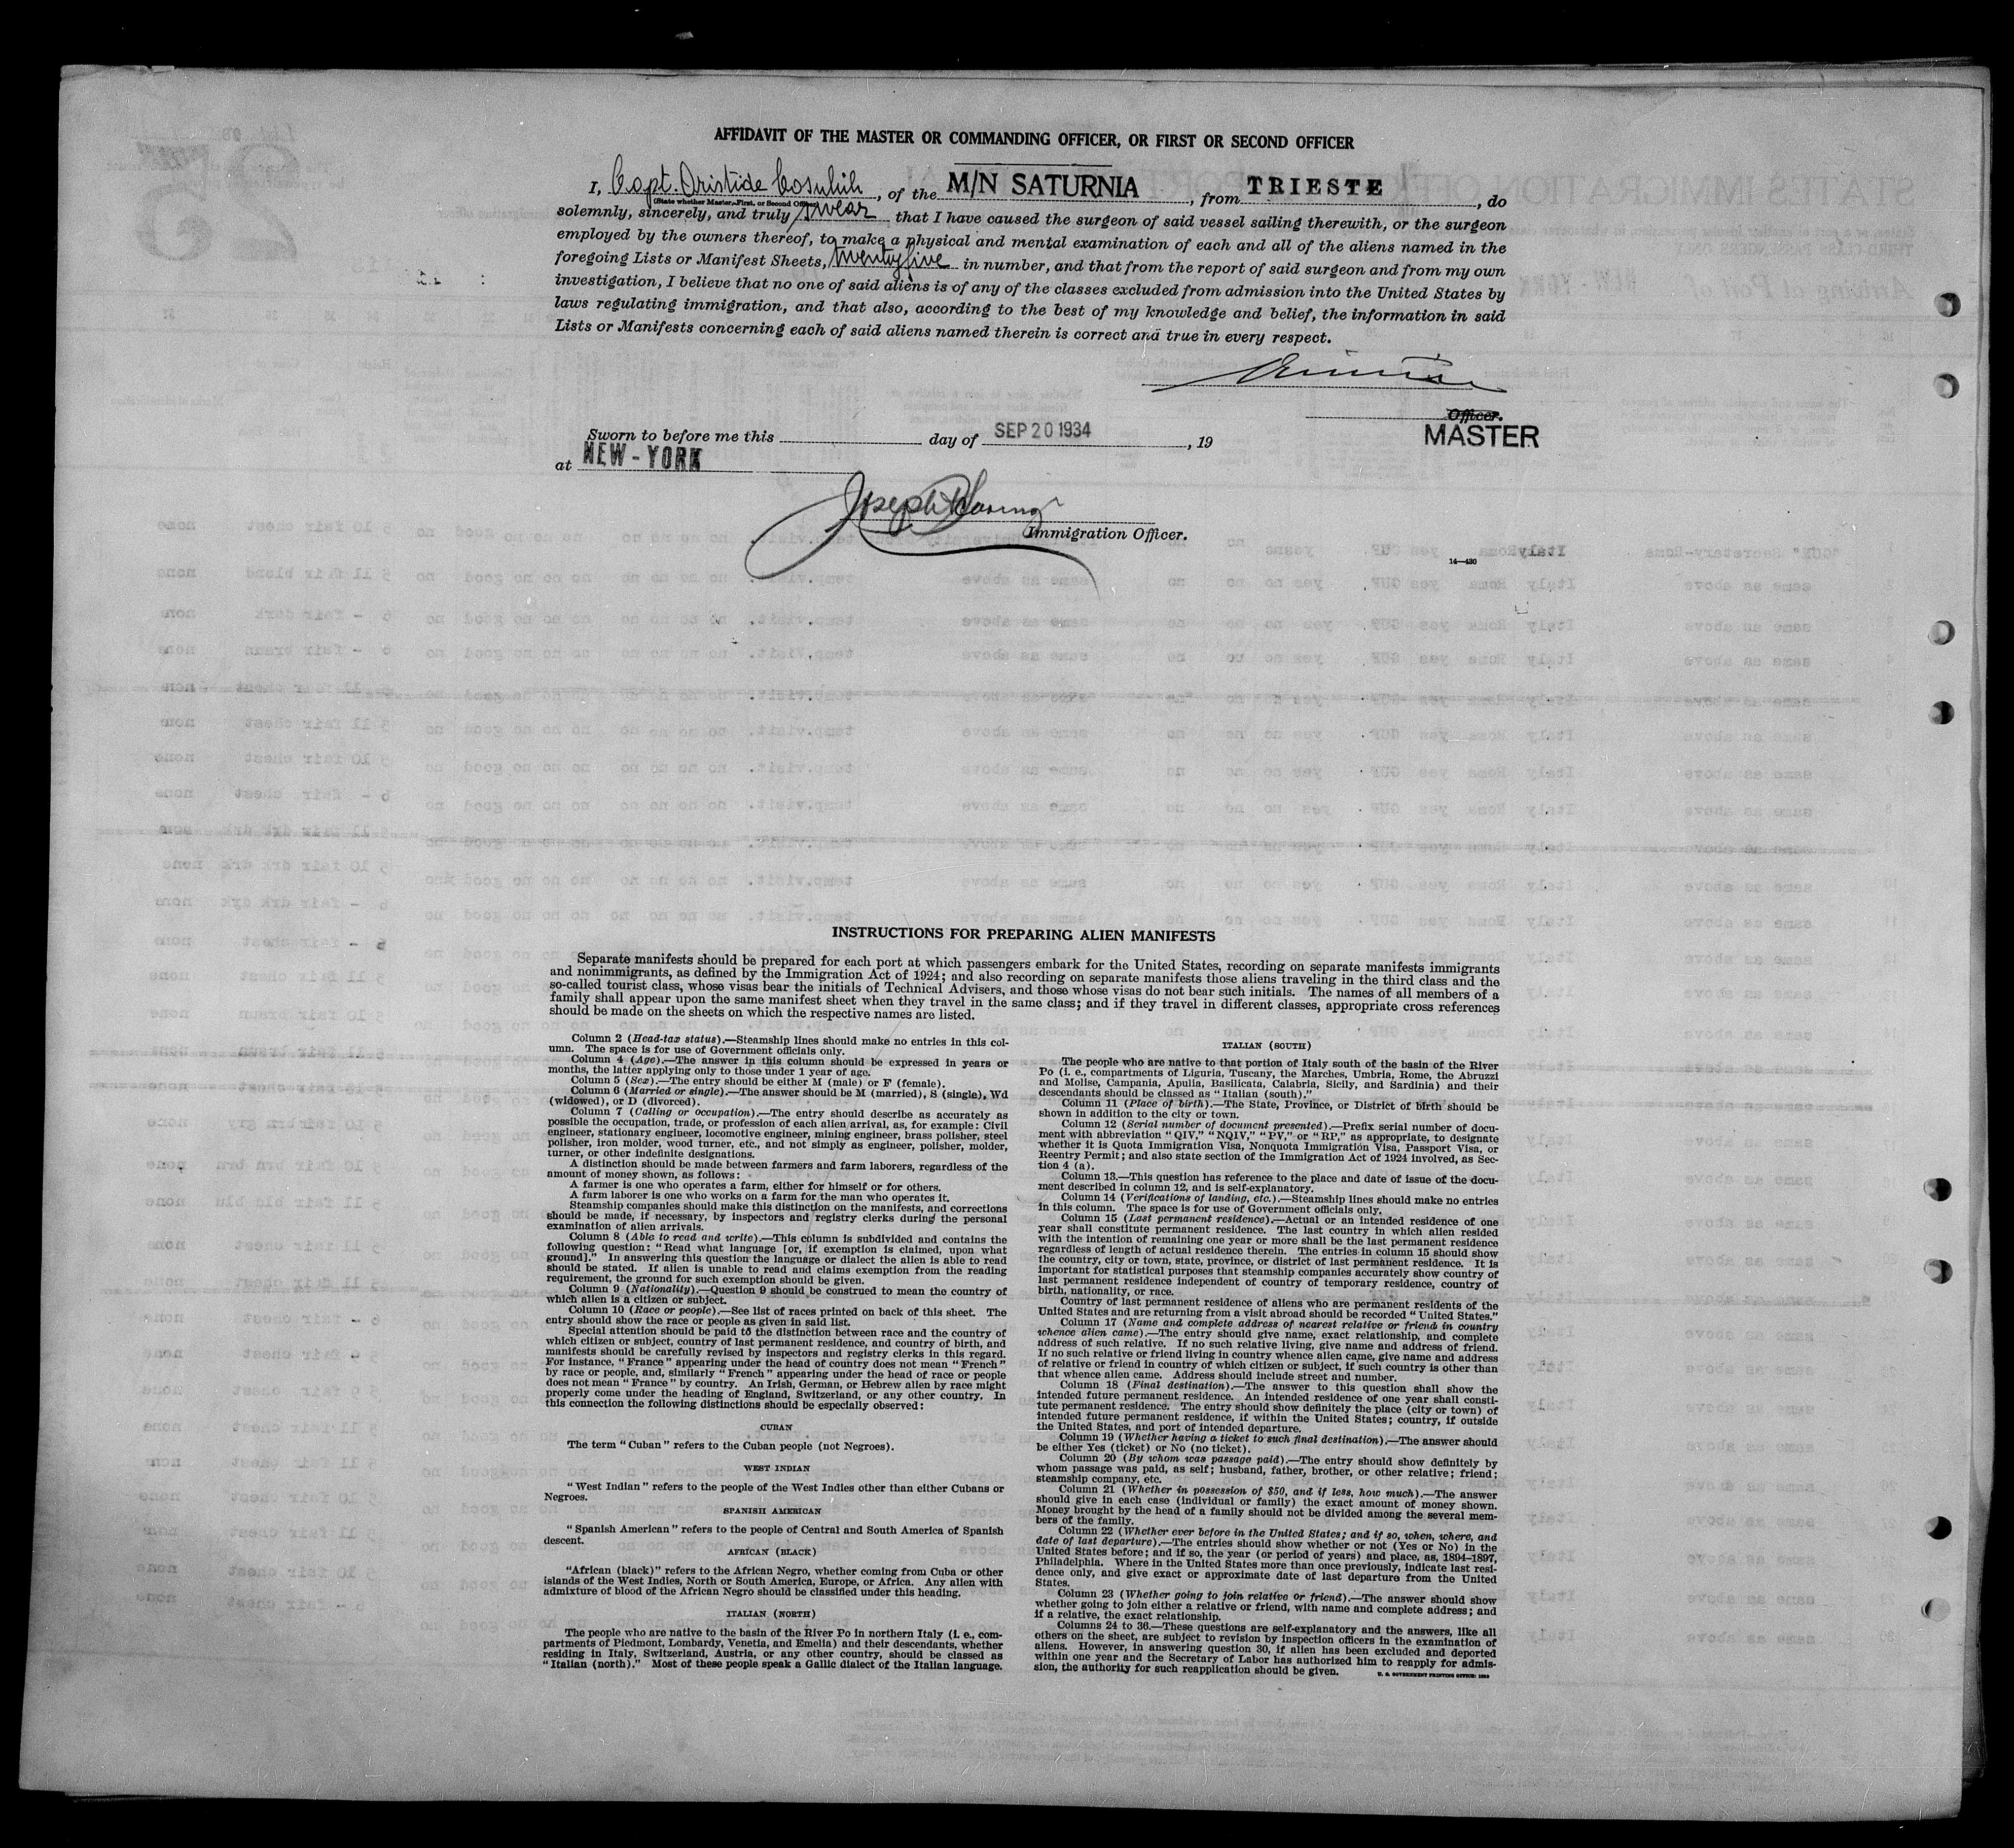 AFFIDAVIT OF THE MASTER OR COMMANDING OFFICER, OR FIRST OR SECOND OFFICER
I, Capt. Aristide Cosulich, of the M/N SATURNIA, from TRIESTE, do
(State whether Master, First, or Second Officer)
solemnly, sincerely, and truly swear that I have caused the surgeon of said vessel sailing therewith, or the surgeon
employed by the owners thereof, to make a physical and mental examination of each and all of the aliens named in the
foregoing Lists or Manifest Sheets, twentyfive in number, and that from the report of said surgeon and from my own
investigation, I believe that no one of said aliens is of any of the classes excluded from admission into the United States by
laws regulating immigration, and that also, according to the best of my knowledge and belief, the information in said
Lists or Manifests concerning each of said aliens named therein is correct and true in every respect.
Officer.
MASTER
Sworn to before me this day of SEP 20 1934, 19
at NEW-YORK
Joseph
Immigration Officer.
14—430
INSTRUCTIONS FOR PREPARING ALIEN MANIFESTS
Separate manifests should be prepared for each port at which passengers embark for the United States, recording on separate manifests immigrants
and nonimmigrants, as defined by the Immigration Act of 1924; and also recording on separate manifests those aliens traveling in the third class and the
so-called tourist class, whose visas bear the initials of Technical Advisers, and those whose visas do not bear such initials. The names of all members of a
family shall appear upon the same manifest sheet when they travel in the same class; and if they travel in different classes, appropriate cross references
should be made on the sheets on which the respective names are listed.
Column 2 (Head-tax status).—Steamship lines should make no entries in this col-
umn. The space is for use of Government officials only.
Column 4 (Age).—The answer in this column should be expressed in years or
months, the latter applying only to those under 1 year of age.
Column 5 (Sex).—The entry should be either M (male) or F (female).
Column 6 (Married or single).—The answer should be M (married), S (single), Wd
(widowed), or D (divorced).
Column 7 (Calling or occupation).—The entry should describe as accurately as
possible the occupation, trade, or profession of each alien arrival, as, for example: Civil
engineer, stationary engineer, locomotive engineer, mining engineer, brass polisher, steel
polisher, iron molder, wood turner, etc., and not simply as engineer, polisher, molder,
turner, or other indefinite designations.
A distinction should be made between farmers and farm laborers, regardless of the
amount of money shown, as follows:
A farmer is one who operates a farm, either for himself or for others.
A farm laborer is one who works on a farm for the man who operates it.
Steamship companies should make this distinction on the manifests, and corrections
should be made, if necessary, by inspectors and registry clerks during the personal
examination of alien arrivals.
Column 8 (Able to read and write).—This column is subdivided and contains the
following question: "Read what language [or, if exemption is claimed, upon what
ground]." In answering this question the language or dialect the alien is able to read
should be stated. If alien is unable to read and claims exemption from the reading
requirement, the ground for such exemption should be given.
Column 9 (Nationality).—Question 9 should be construed to mean the country of
which alien is a citizen or subject.
Column 10 (Race or people).—See list of races printed on back of this sheet. The
entry should show the race or people as given in said list.
Special attention should be paid to the distinction between race and the country of
which citizen or subject, country of last permanent residence, and country of birth, and
manifests should be carefully revised by inspectors and registry clerks in this regard.
For instance, "France" appearing under the head of country does not mean "French"
by race or people, and, similarly "French" appearing under the head of race or people
does not mean "France" by country. An Irish, German, or Hebrew alien by race might
properly come under the heading of England, Switzerland, or any other country. In
this connection the following distinctions should be especially observed:
CUBAN
The term "Cuban" refers to the Cuban people (not Negroes).
WEST INDIAN
"West Indian" refers to the people of the West Indies other than either Cubans or
Negroes.
SPANISH AMERICAN
"Spanish American" refers to the people of Central and South America of Spanish
descent.
AFRICAN (BLACK)
"African (black)" refers to the African Negro, whether coming from Cuba or other
islands of the West Indies, North or South America, Europe, or Africa. Any alien with
admixture of blood of the African Negro should be classified under this heading.
ITALIAN (NORTH)
The people who are native to the basin of the River Po in northern Italy (i. e., com-
partments of Piedmont, Lombardy, Venetia, and Emelia) and their descendants, whether
residing in Italy, Switzerland, Austria, or any other country, should be classed as
"Italian (north)." Most of these people speak a Gallic dialect of the Italian language.
ITALIAN (SOUTH)
The people who are native to that portion of Italy south of the basin of the River
Po (i. e., compartments of Liguria, Tuscany, the Marches, Umbria, Rome, the Abruzzi
and Molise, Campania, Apulia, Basilicata, Calabria, Sicily, and Sardinia) and their
descendants should be classed as "Italian (south)."
Column 11 (Place of birth).—The State, Province, or District of birth should be
shown in addition to the city or town.
Column 12 (Serial number of document presented).—Prefix serial number of docu-
ment with abbreviation "QIV," "NQIV," "PV," or "RP," as appropriate, to designate
whether it is Quota Immigration Visa, Nonquota Immigration Visa, Passport Visa, or
Reentry Permit; and also state section of the Immigration Act of 1924 involved, as Sec-
tion 4 (a).
Column 13.—This question has reference to the place and date of issue of the docu-
ment described in column 12, and is self-explanatory.
Column 14 (Verifications of landing, etc.).—Steamship lines should make no entries
in this column. The space is for use of Government officials only.
Column 15 (Last permanent residence).—Actual or an intended residence of one
year shall constitute permanent residence. The last country in which alien resided
with the intention of remaining one year or more shall be the last permanent residence
regardless of length of actual residence therein. The entries in column 15 should show
the country, city or town, state, province, or district of last permanent residence. It is
important for statistical purposes that steamship companies accurately show country of
last permanent residence independent of country of temporary residence, country of
birth, nationality, or race.
Country of last permanent residence of aliens who are permanent residents of the
United States and are returning from a visit abroad should be recorded "United States."
Column 17 (Name and complete address of nearest relative or friend in country
whence alien came).—The entry should give name, exact relationship, and complete
address of such relative. If no such relative living, give name and address of friend.
If no such relative or friend living in country whence alien came, give name and address
of relative or friend in country of which citizen or subject, if such country is other than
that whence alien came. Address should include street and number.
Column 18 (Final destination).—The answer to this question shall show the
intended future permanent residence. An intended residence of one year shall consti-
tute permanent residence. The entry should show definitely the place (city or town) of
intended future permanent residence, if within the United States; country, if outside
the United States, and port of intended departure.
Column 19 (Whether having a ticket to such final destination).—The answer should
be either Yes (ticket) or No (no ticket).
Column 20 (By whom was passage paid).—The entry should show definitely by
whom passage was paid, as self; husband, father, brother, or other relative; friend;
steamship company, etc.
Column 21 (Whether in possession of $50, and if less, how much).—The answer
should give in each case (individual or family) the exact amount of money shown.
Money brought by the head of a family should not be divided among the several mem-
bers of the family.
Column 22 (Whether ever before in the United States; and if so, when, where, and
date of last departure).—The entries should show whether or not (Yes or No) in the
United States before; and if so, the year (or period of years) and place, as, 1894–1897,
Philadelphia. Where in the United States more than once previously, indicate last resi-
dence only, and give exact or approximate date of last departure from the United
States.
Column 23 (Whether going to join relative or friend).—The answer should show
whether going to join either a relative or friend, with name and complete address; and
if a relative, the exact relationship.
Columns 24 to 36.—These questions are self-explanatory and the answers, like all
others on the sheet, are subject to revision by inspection officers in the examination of
aliens. However, in answering question 30, if alien has been excluded and deported
within one year and the Secretary of Labor has authorized him to reapply for admis-
sion, the authority for such reapplication should be given.
U. S. GOVERNMENT PRINTING OFFICE: